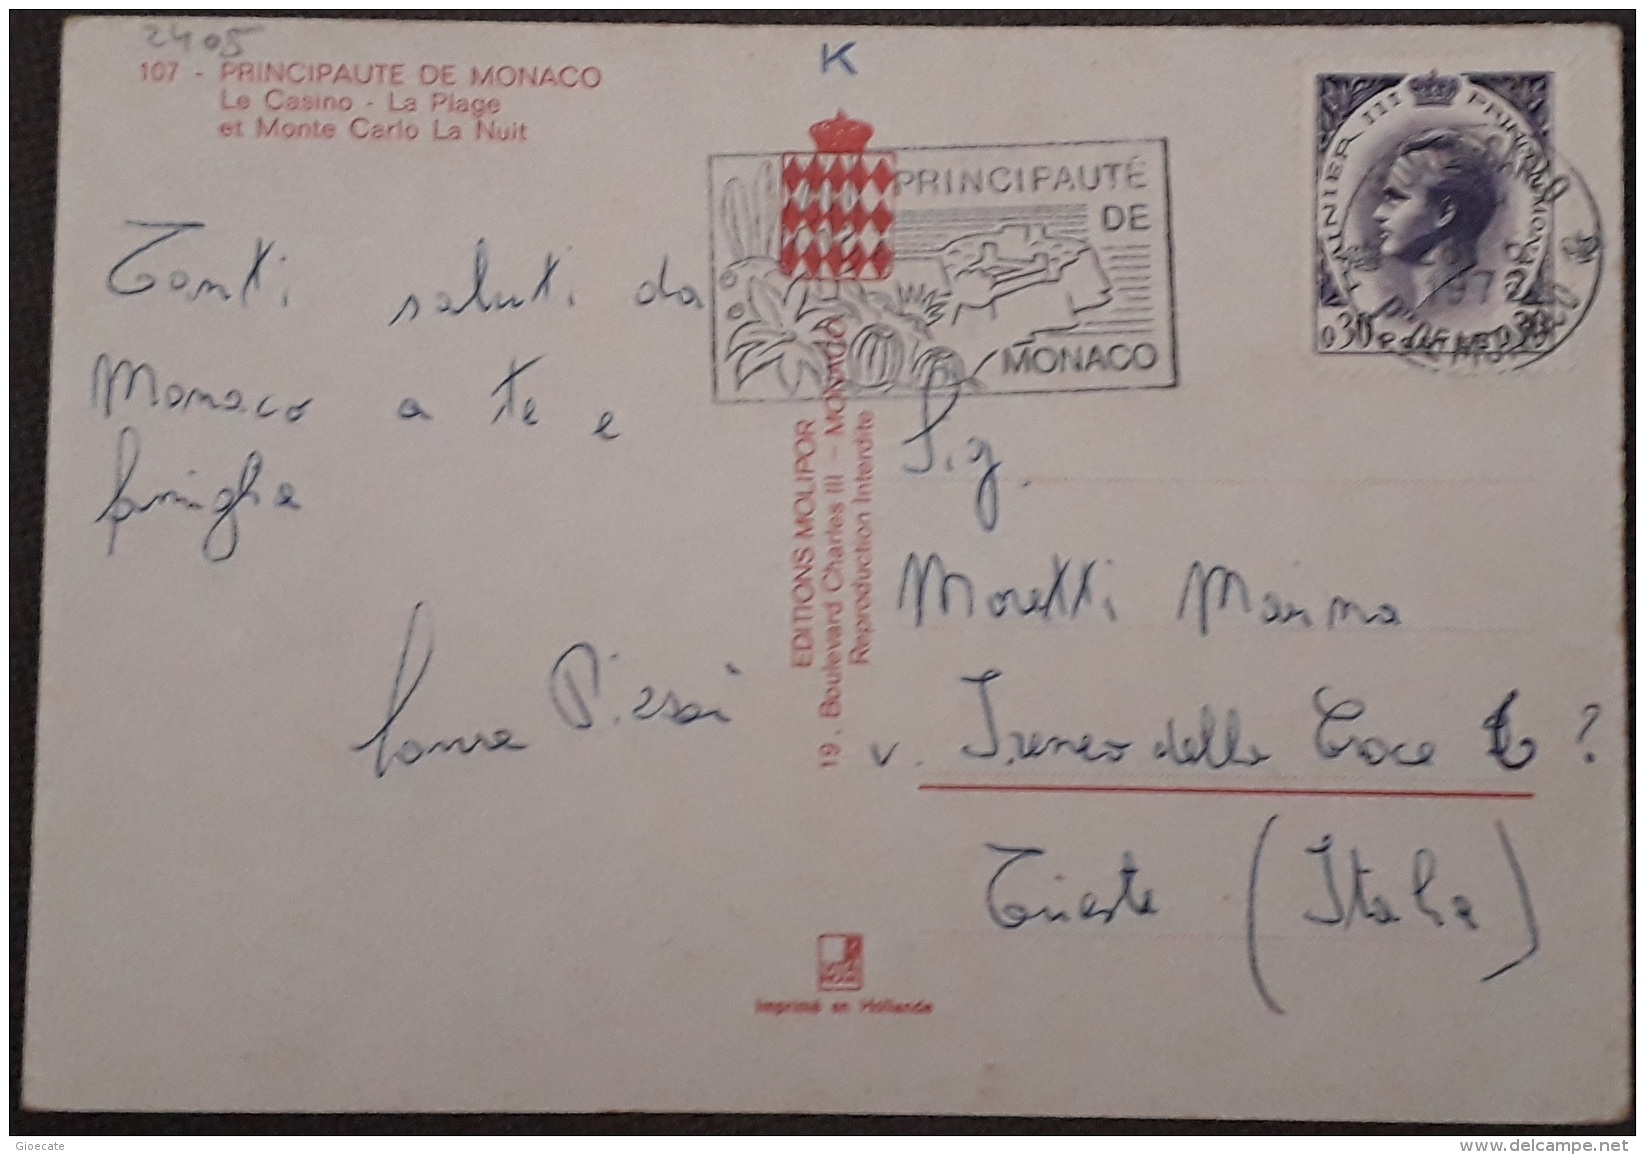 2405
107 - PRINCIPAUTE DE MONACO
Le Casino - La Plage
et Monte Carlo La Nuit
K
PRINCIPAUTÉ
DE
MONACO
RAINIER III PRINCE DE MONACO
0,30 POSTES 0,30
Tanti saluti da
Monaco a te e
famiglia
EDITIONS MOLIPOR
19, Boulevard Charles III - MONACO
Reproduction Interdite
Sig.
Moretti Marina
v. Ireneo della Croce 6?
Trieste (Italia)
Imprimé en Hollande
Gioecate
www.delcampe.net